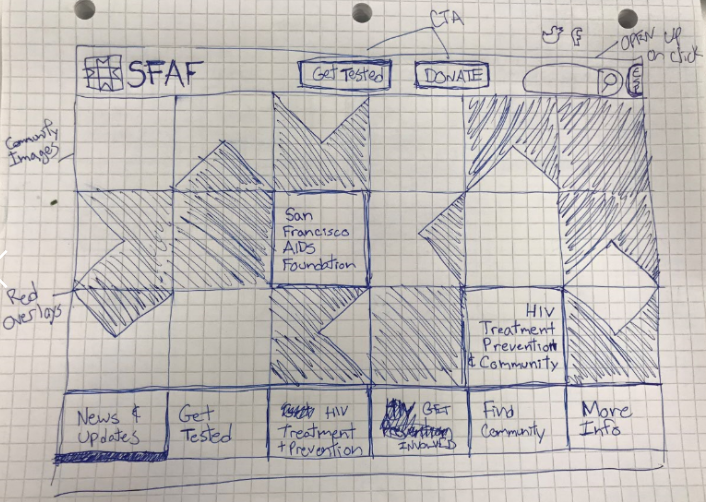 CTA
OPEN UP
on click
SFAF
Get Tested
DONATE
Community
Images
San
Francisco
AIDS
Foundation
Red
Overlays
HIV
Treatment
Prevention
& Community
News &
Updates
Get
Tested
HIV
Treatment
+ Prevention
GET
INVOLVED
Find
Community
More
Info